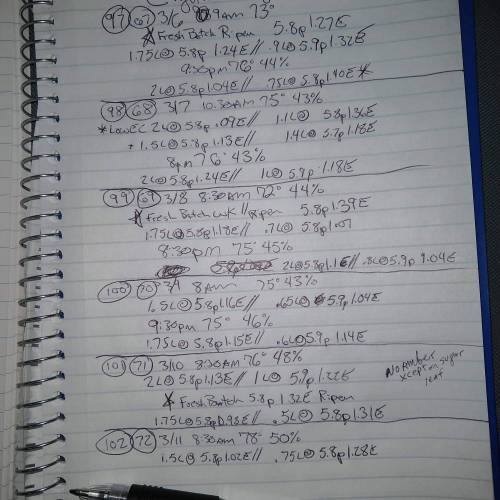 97 67 3/6 9AM 73°
Fresh Batch Ripen 5.8p 1.27E
1.75L@5.8p 1.24E// .9L@5.9p 1.32E
9:30pm 76° 44%
2L@5.8p 1.04E// .75L@5.8p 1.40E*
98 68 3/7 10:30AM 75° 43%
*Low EC 2L@5.8p .09E// 1.1L@ 5.8p 1.36E
+ 1.5L@5.8p 1.13E// 1.4L@5.7p 1.18E
8pm 76° 43%
2L@5.8p 1.24E// 1L@5.9p 1.18E
99 69 3/8 8:30AM 72° 44%
Fresh Batch Ripen 5.8p 1.39E
1.75L@5.8p 1.18E// .7L@ 5.8p 1.07
8:30pm 75° 45%
2L@5.8p 1.1E// .8L@5.9p 1.04E
100 70 3/9 8AM 75° 43%
1.5L@5.8p 1.16E// .65L@5.9p 1.04E
9:30pm 75° 46%
1.75L@5.8p 1.15E// .6L@5.9p 1.14E
101 71 3/10 8:30AM 76° 48%
2L@5.8p 1.13E// 1L@5.9p 1.22E
No Amber
xcept on sugar
leaf
Fresh Batch 5.8p 1.32E Ripen
1.75L@5.8p 0.98E// .5L@5.8p 1.31E
102 72 3/11 8:30AM 78° 50%
1.5L@5.8p 1.02E// .75L@5.8p 1.28E